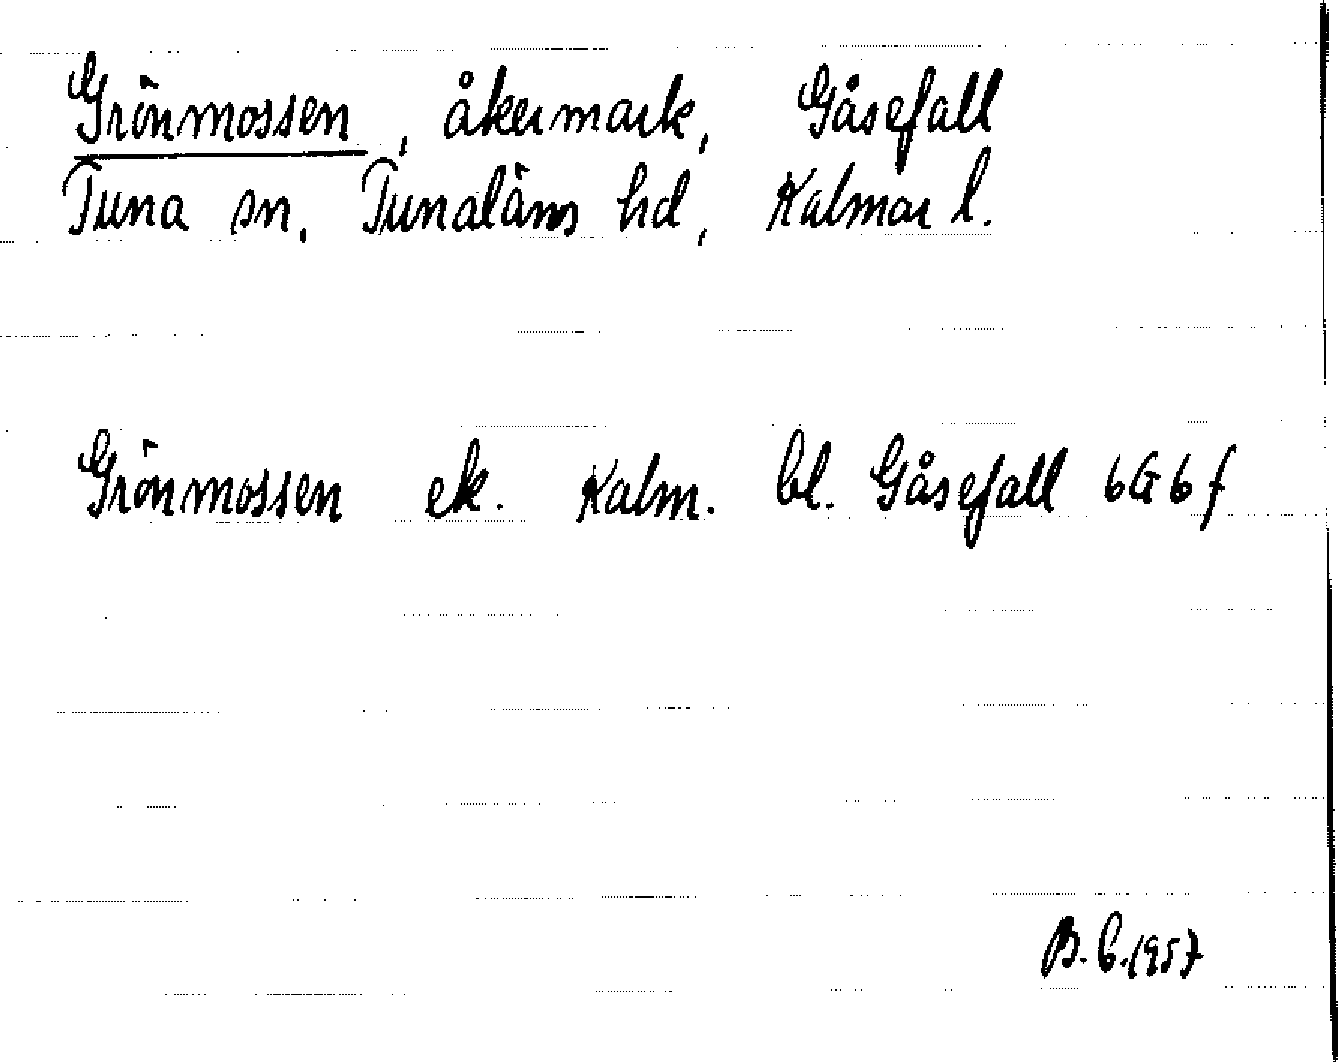 Grönmossen, åkermark, Gåsefall
Tuna sn, Tunaläns hd, Kalmar l.
Grönmossen ek. Kalm. bl. Gåsefall 6G6f
B.C. 1957